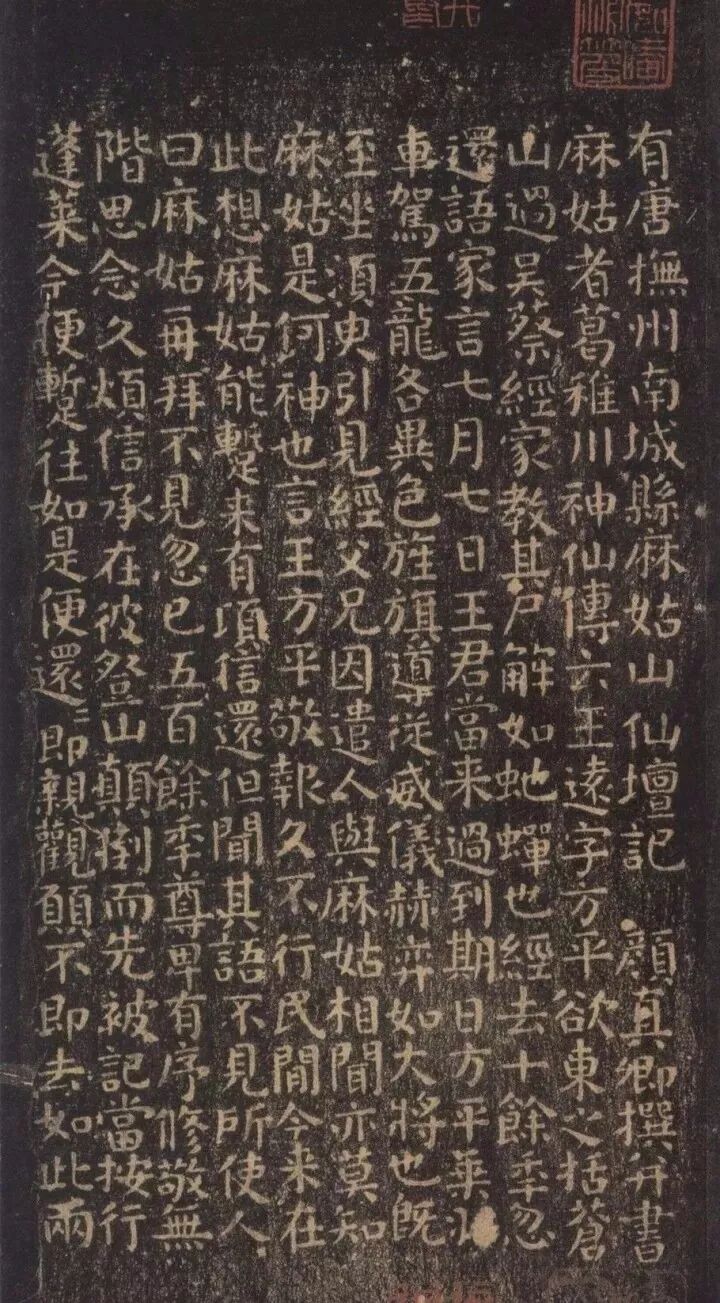 有唐撫州南城縣麻姑山仙壇記 顏真卿撰并書
麻姑者葛稚川神仙傳云王遠字方平欲東之括蒼
山過吳蔡經家教其尸解如虵蟬也經去十餘秊忽
還語家言七月七日王君當来過到期日方平乗
車駕五龍各異色旌旗導從威儀赫弈如大將也既
至坐須臾引見經父兄因遣人與麻姑相聞亦莫知
麻姑是何神也言王方平敬報久不行民間今来在
此想麻姑能蹔来有頃信還但聞其語不見所使人
曰麻姑再拜不見忽已五百餘秊尊卑有序修敬無
階思念久煩信承在彼登山顛倒而先被記當按行
蓬莱今便蹔往如是便還〻即親觀願不即去如此兩